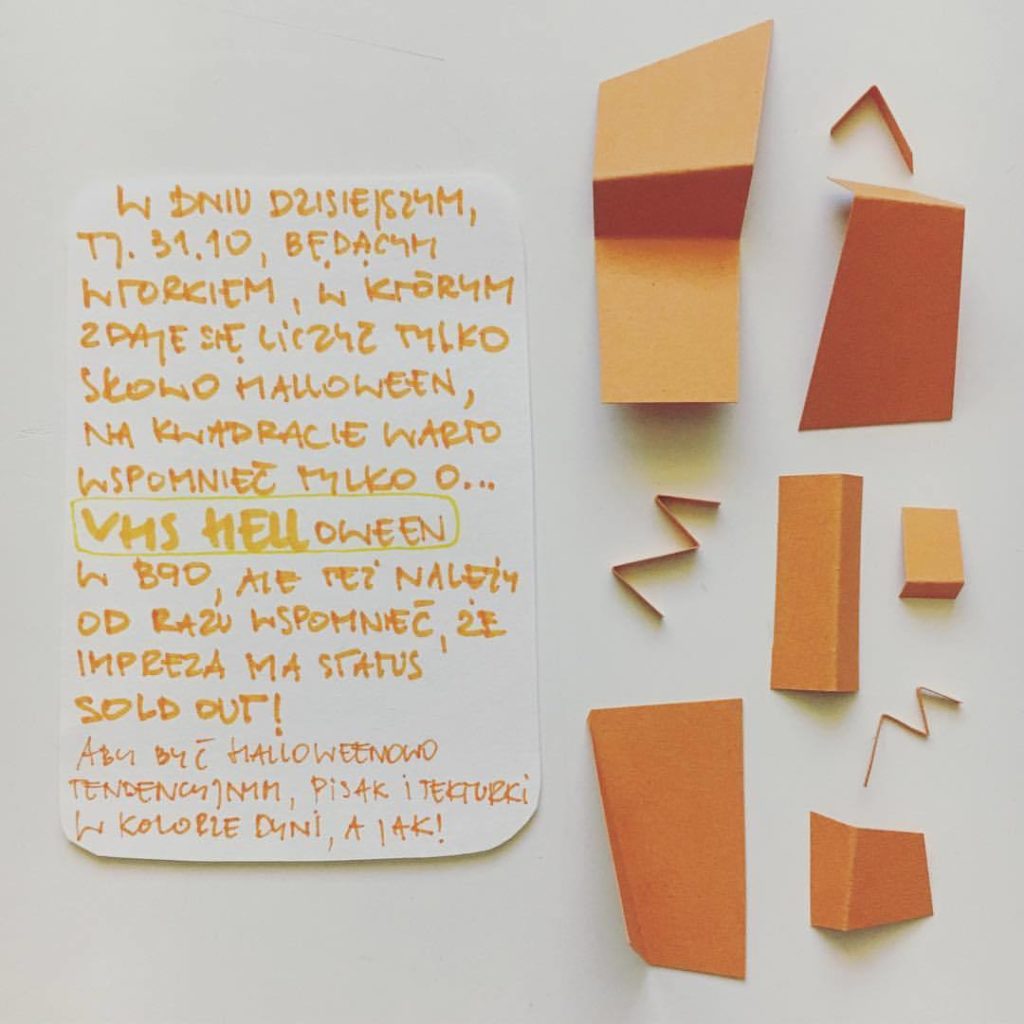 W DNIU DZISIEJSZYM,
TJ. 31.10, BĘDĄCYM
WTORKIEM, W KTÓRYM
ZDAJE SIĘ LICZYĆ TYLKO
SŁOWO HALLOWEEN,
NA KWADRACIE WARTO
WSPOMNIEĆ TYLKO O...
VHS HELLOWEEN
W B90, ALE TEŻ NALEŻY
OD RAZU WSPOMNIEĆ, ŻE
IMPREZA MA STATUS
SOLD OUT!
ABY BYĆ HALLOWEENOWO
TENDENCYJNYM, PISAK I TEKTURKI
W KOLORZE DYNI, A JAK!